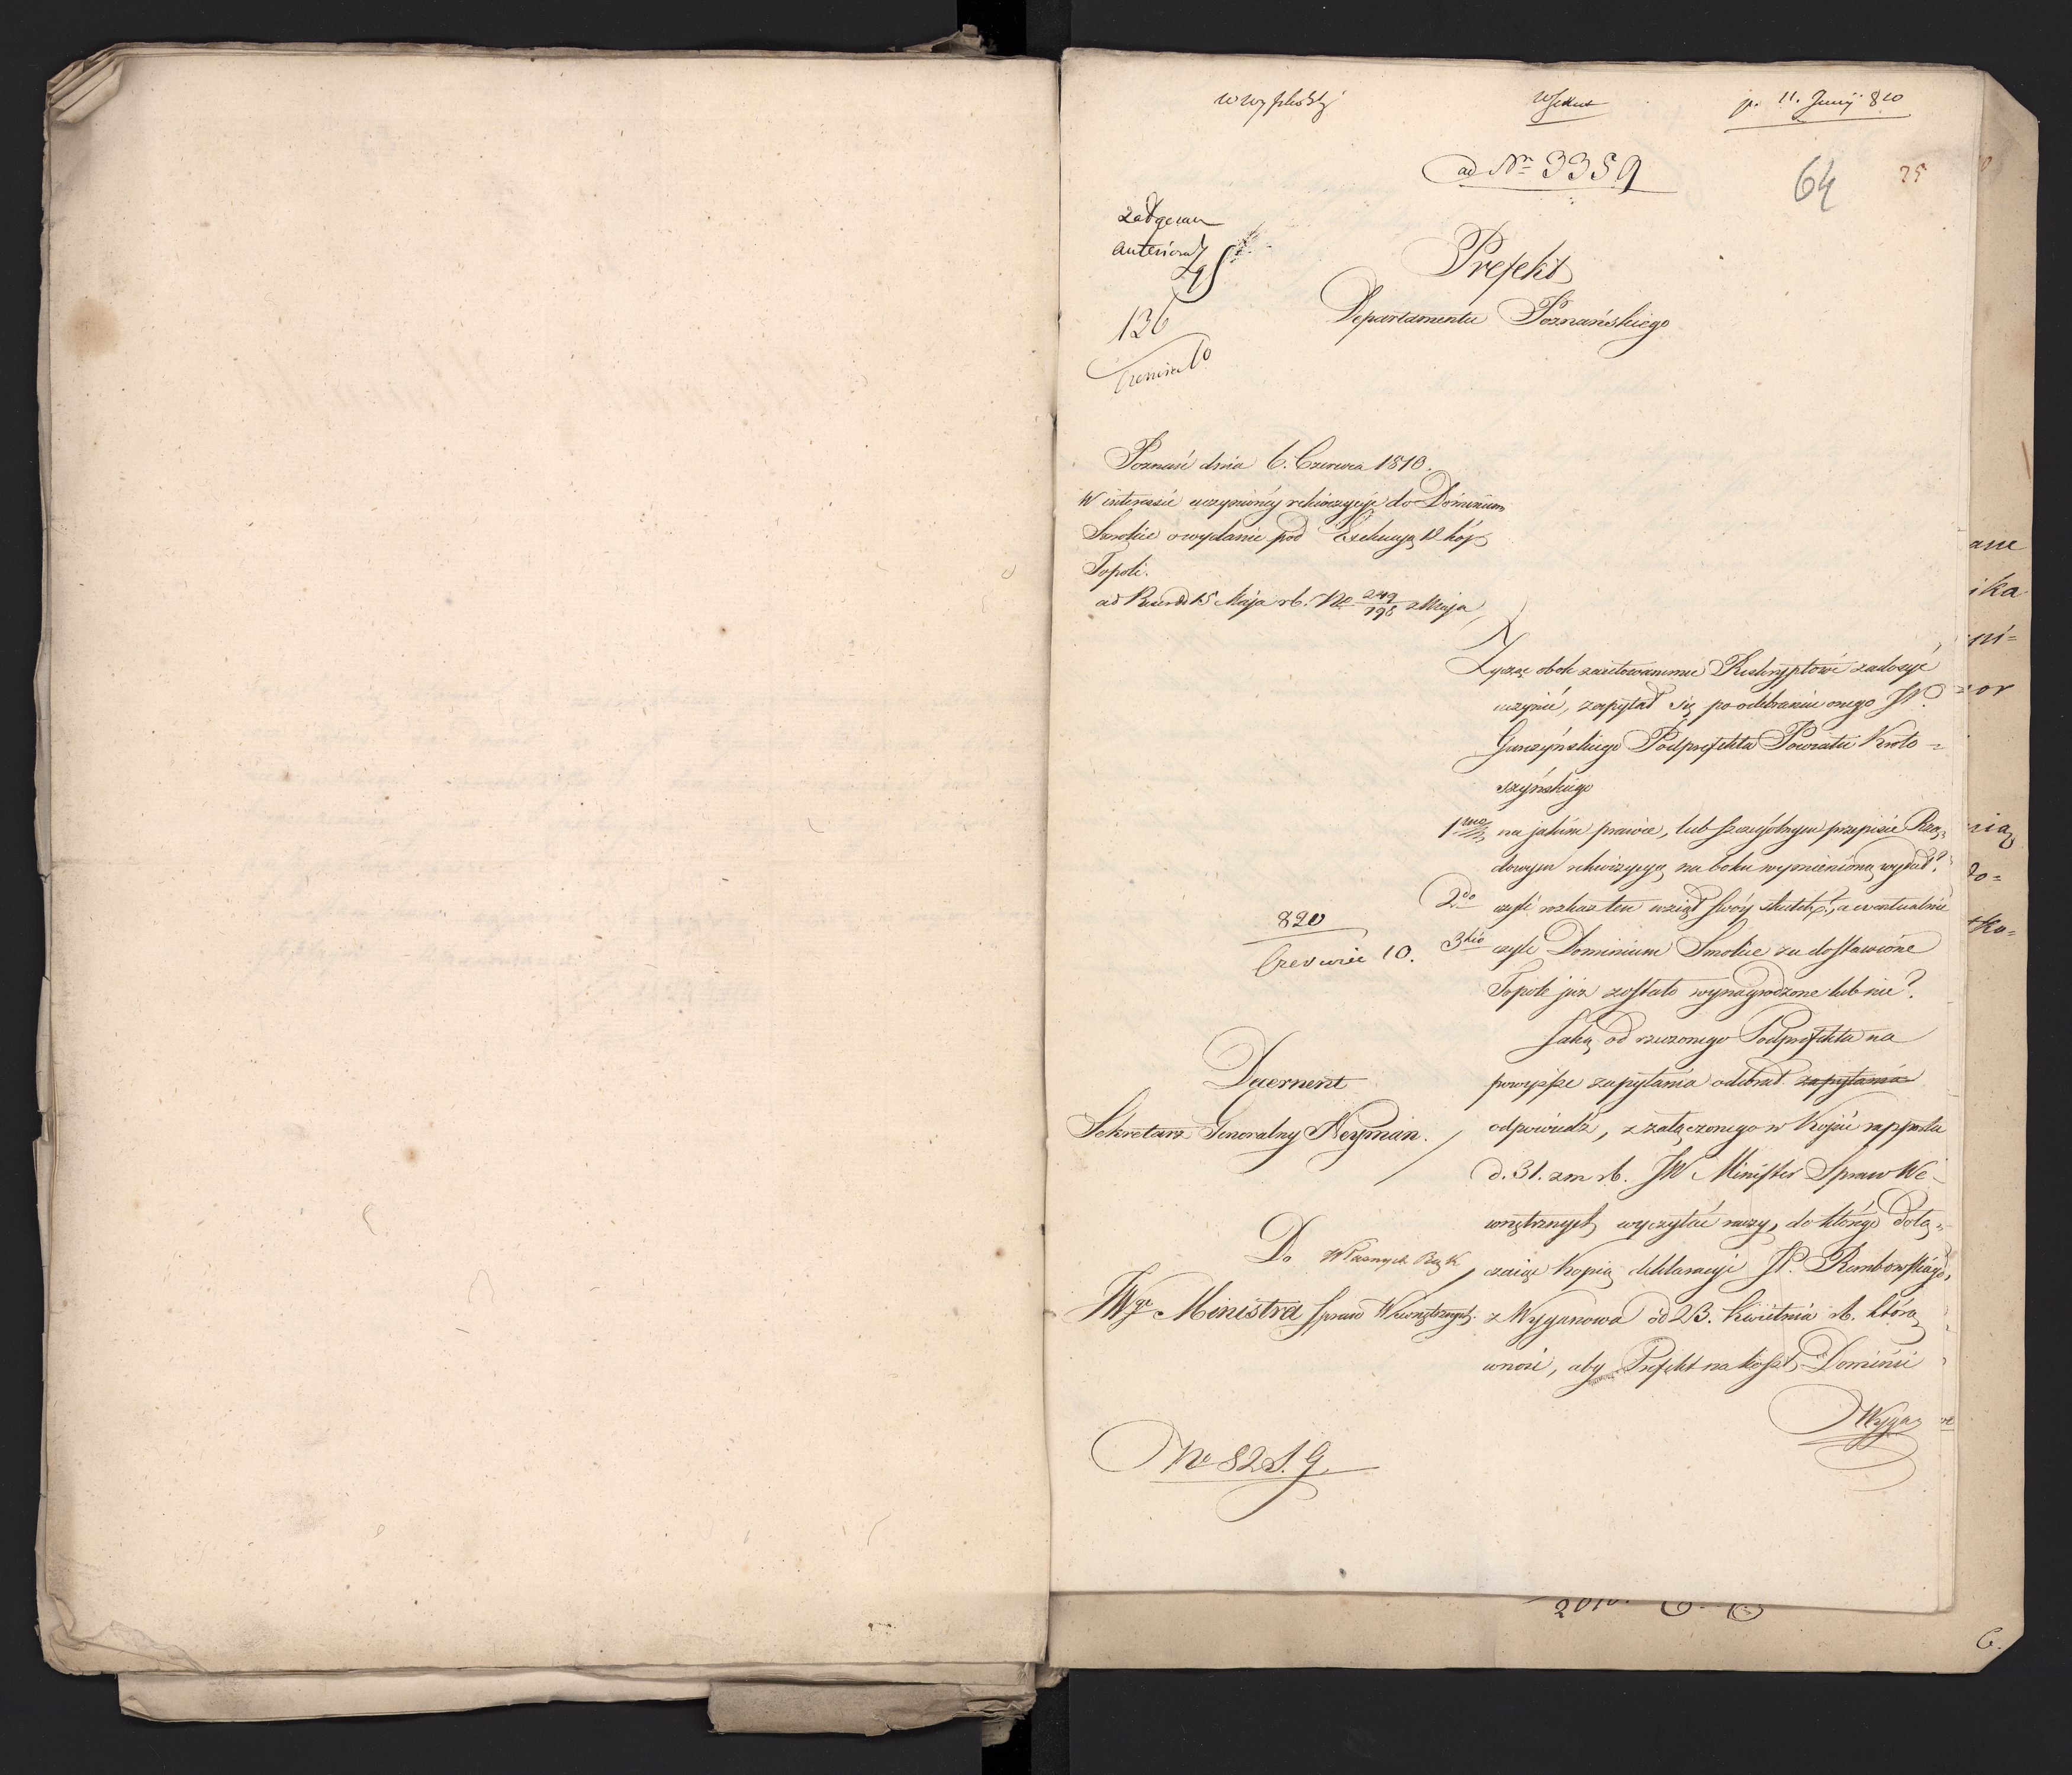 p. 11. Junij 810
ad Nro 3359
64
Prefekt
Departamentu Poznańskiego
136
Czerwca
Poznań dnia 6. Czerwca 1810.
W interessie uczynionéy rekwizycyi do Dominium
Smolice o wydanie pod Exekucyą 12 kóp
Topoli.
ad 15 Maja rb. No 249/195 z Maja
Życząc obok zacitowanemu Reskryptowi zadosyć
uczynić, zapytał się po odebraniu onego JP.
Garczyńskiego Podprefekta Powiatu Kroto=
szyńskiego
1mo na jakim prawie, lub szczególnym przepisie Rzą=
dowym rekwizycyą na boku wymienioną wydał?
2do czyli rozkaz ten wziął swóy skutek?, a ewentualnie
3tio czyli Dominium Smolice za dostawione
Topole już zostało wynagrodzone lub nie?
820
Czerwca 10.
Jaką od rzeczonego Podprefekta na
powyższe zapytania odebrał zapytania
odpowiedź, z załączonego w Kopii rapportu
d. 31. zm rb. JW Minister Spraw We=
wnętrznych wyczytać raczy, do którégo dołą=
czając kopią deklaracyi JP. Rembowskiego,
z Wyganowa od 23. Kwietnia rb. którą
wnosi, aby Prefekt na koszt Dominii
Wyga=
Decernent
Sekretarz Generalny Neyman.
Do Własnych Rąk
JWgo Ministra Spraw Wewnętrznych
No 82 S. G.